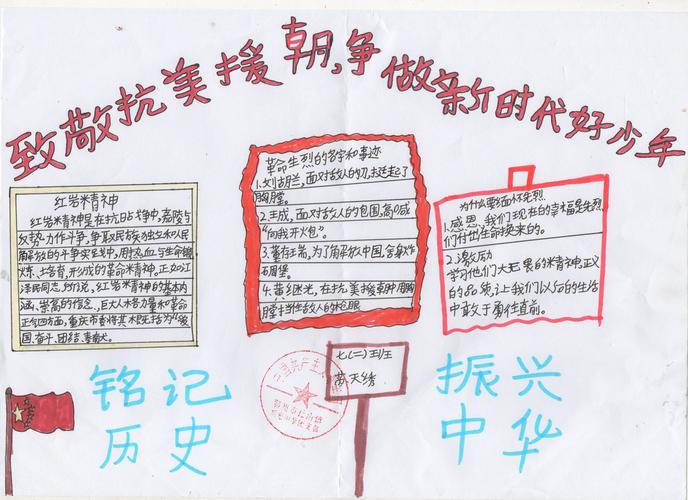 致敬抗美援朝,争做新时代好少年
红岩精神
红岩精神是在抗日战争中,
反势力作斗争,争取民族独立和人民
解放的斗争实践中,用热血与生命锻
炼、培育,形成的革命精神,正如江
泽民同志所说,红岩精神的基本内
涵、崇高的信念、巨大人格力量和革命
正气四方面,重庆市委将其概括为“爱
国、奋斗、团结、奉献。
革命先烈的名字和事迹
1.刘胡兰,面对敌人的刀,挺起了
胸膛。
2.王成,面对敌人的包围,高喊
“向我开火包”。
3.董存瑞,为了解放中国,舍身炸
石周堡。
4.黄继光,在抗美援朝时用胸
膛挡住敌人的枪眼
为什么要缅怀先烈
1.感恩、我们现在的幸福是先烈
们付出生命换来的。
2.激励
学习他们大无畏的精神,正义
的品质,让我们以后的生活
中敢于勇往直前。
七(二)班
苟天绣
铭记
历史
振兴
中华